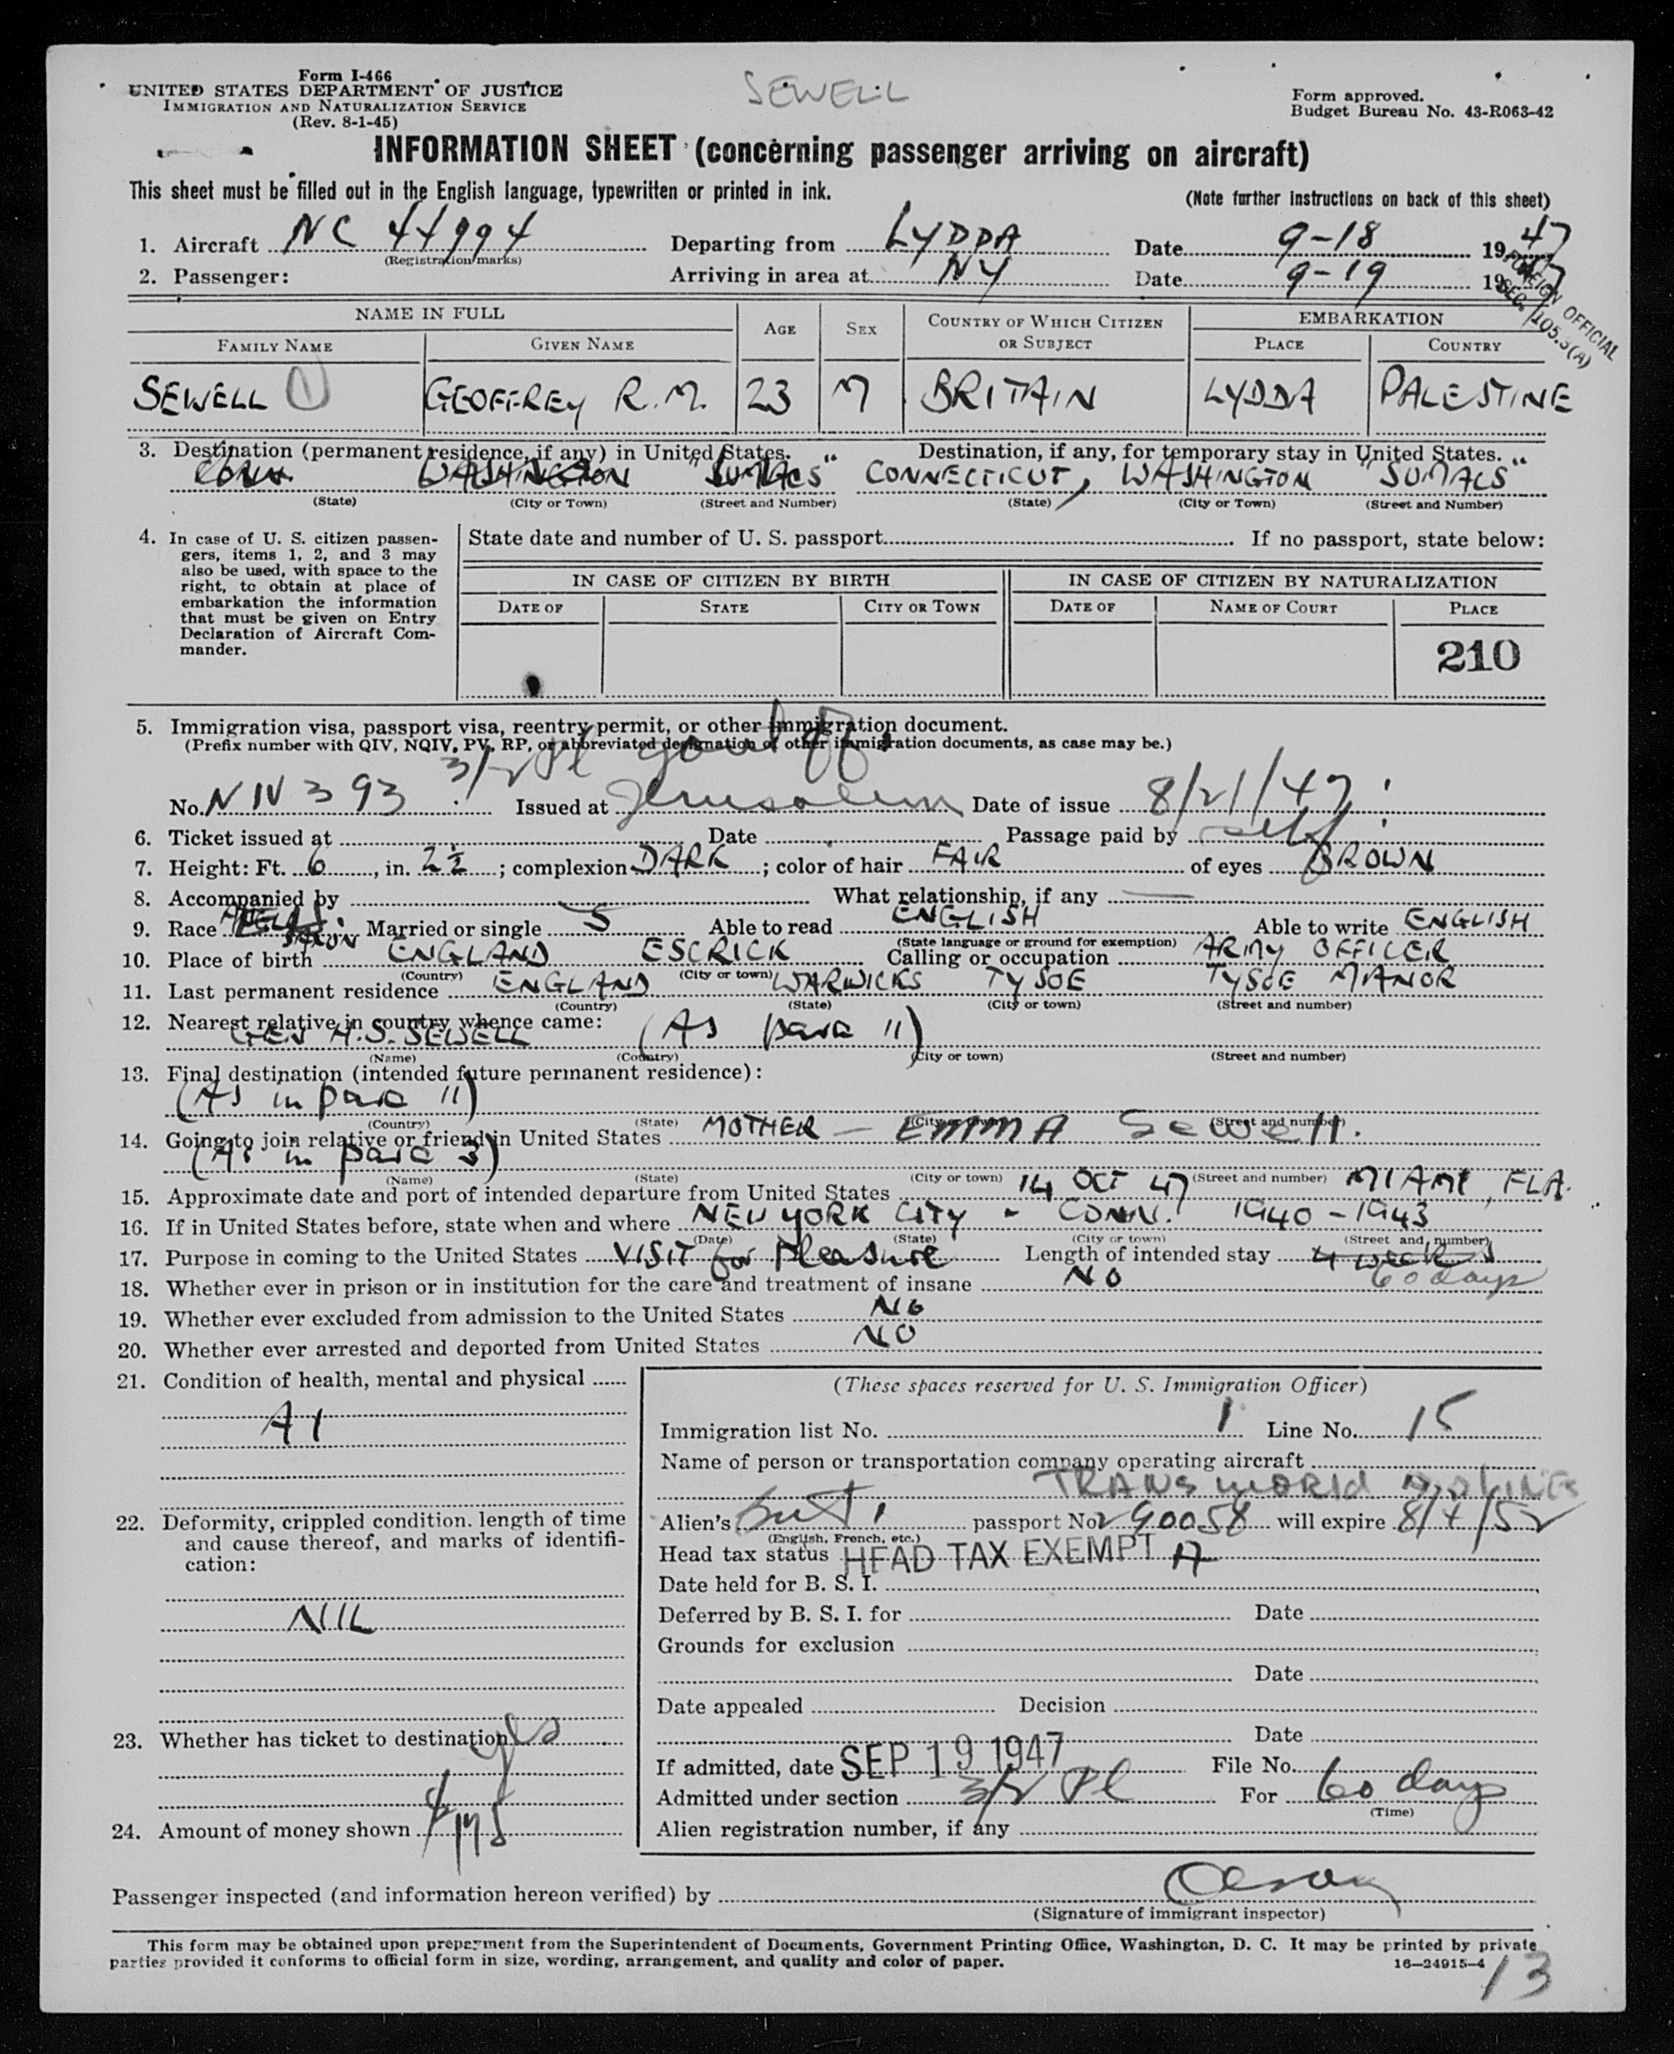 Form I-466
UNITED STATES DEPARTMENT OF JUSTICE
IMMIGRATION AND NATURALIZATION SERVICE
(Rev. 8-1-45)
SEWELL
Form approved.
Budget Bureau No. 43-R063-42
INFORMATION SHEET (concerning passenger arriving on aircraft)
This sheet must be filled out in the English language, typewritten or printed in ink.
(Note further instructions on back of this sheet)
1. Aircraft NC 44994 Departing from LYDDA Date 9-18 1947
(Registration marks)
2. Passenger: Arriving in area at NY Date 9-19 1947
FOREIGN OFFICIAL
SEC. 105.3(A)
NAME IN FULL AGE SEX COUNTRY OF WHICH CITIZEN OR SUBJECT EMBARKATION
FAMILY NAME GIVEN NAME PLACE COUNTRY
SEWELL GEOFFREY R.M. 23 M BRITAIN LYDDA PALESTINE
3. Destination (permanent residence, if any) in United States. Destination, if any, for temporary stay in United States.
CONN. WASHINGTON "SUMACS" CONNECTICUT, WASHINGTON "SUMACS"
(State) (City or Town) (Street and Number) (State) (City or Town) (Street and Number)
4. In case of U. S. citizen passengers, items 1, 2, and 3 may also be used, with space to the right, to obtain at place of embarkation the information that must be given on Entry Declaration of Aircraft Commander.
State date and number of U. S. passport If no passport, state below:
IN CASE OF CITIZEN BY BIRTH IN CASE OF CITIZEN BY NATURALIZATION
DATE OF STATE CITY OR TOWN DATE OF NAME OF COURT PLACE
210
5. Immigration visa, passport visa, reentry permit, or other immigration document.
(Prefix number with QIV, NQIV, PV, RP, or abbreviated designation of other immigration documents, as case may be.)
3/2 Pl govt off.
No. NIV 393 Issued at Jerusalem Date of issue 8/21/47
6. Ticket issued at Date Passage paid by self
7. Height: Ft. 6, in. 2½; complexion DARK; color of hair FAIR of eyes BROWN
8. Accompanied by What relationship, if any —
9. Race SAXON Married or single S Able to read ENGLISH Able to write ENGLISH
(State language or ground for exemption)
10. Place of birth ENGLAND ESCRICK Calling or occupation ARMY OFFICER
(Country) (City or town)
11. Last permanent residence ENGLAND WARWICKS TYSOE TYSOE MANOR
(Country) (State) (City or town) (Street and number)
12. Nearest relative in country whence came:
GEN H.S. SEWELL (As para 11)
(Name) (Country) (City or town) (Street and number)
13. Final destination (intended future permanent residence):
(As in para 11)
(Country) (State) (City or town) (Street and number)
14. Going to join relative or friend in United States MOTHER — EMMA Sewell.
(As in para 3)
(Name) (State) (City or town) (Street and number)
15. Approximate date and port of intended departure from United States 14 OCT 47 MIAMI, FLA.
16. If in United States before, state when and where NEW YORK CITY - CONN. 1940-1943
(Date) (State) (City or town) (Street and number)
17. Purpose in coming to the United States VISIT for Pleasure Length of intended stay 4 weeks
60 days
18. Whether ever in prison or in institution for the care and treatment of insane NO
19. Whether ever excluded from admission to the United States NO
20. Whether ever arrested and deported from United States NO
21. Condition of health, mental and physical
A1
22. Deformity, crippled condition. length of time and cause thereof, and marks of identification:
NIL
23. Whether has ticket to destination yes
24. Amount of money shown
(These spaces reserved for U. S. Immigration Officer)
Immigration list No. 1 Line No. 15
Name of person or transportation company operating aircraft
TRANS WORLD AIRLINES
Alien's Brit. passport No 290058 will expire 8/4/52
(English, French, etc.)
Head tax status HEAD TAX EXEMPT
Date held for B. S. I.
Deferred by B. S. I. for Date
Grounds for exclusion
Date
Date appealed Decision
Date
If admitted, date SEP 19 1947 File No.
Admitted under section 3/2 Pl For 60 days
(Time)
Alien registration number, if any
Passenger inspected (and information hereon verified) by
(Signature of immigrant inspector)
This form may be obtained upon prepayment from the Superintendent of Documents, Government Printing Office, Washington, D. C. It may be printed by private
parties provided it conforms to official form in size, wording, arrangement, and quality and color of paper.
16—24915-4
13